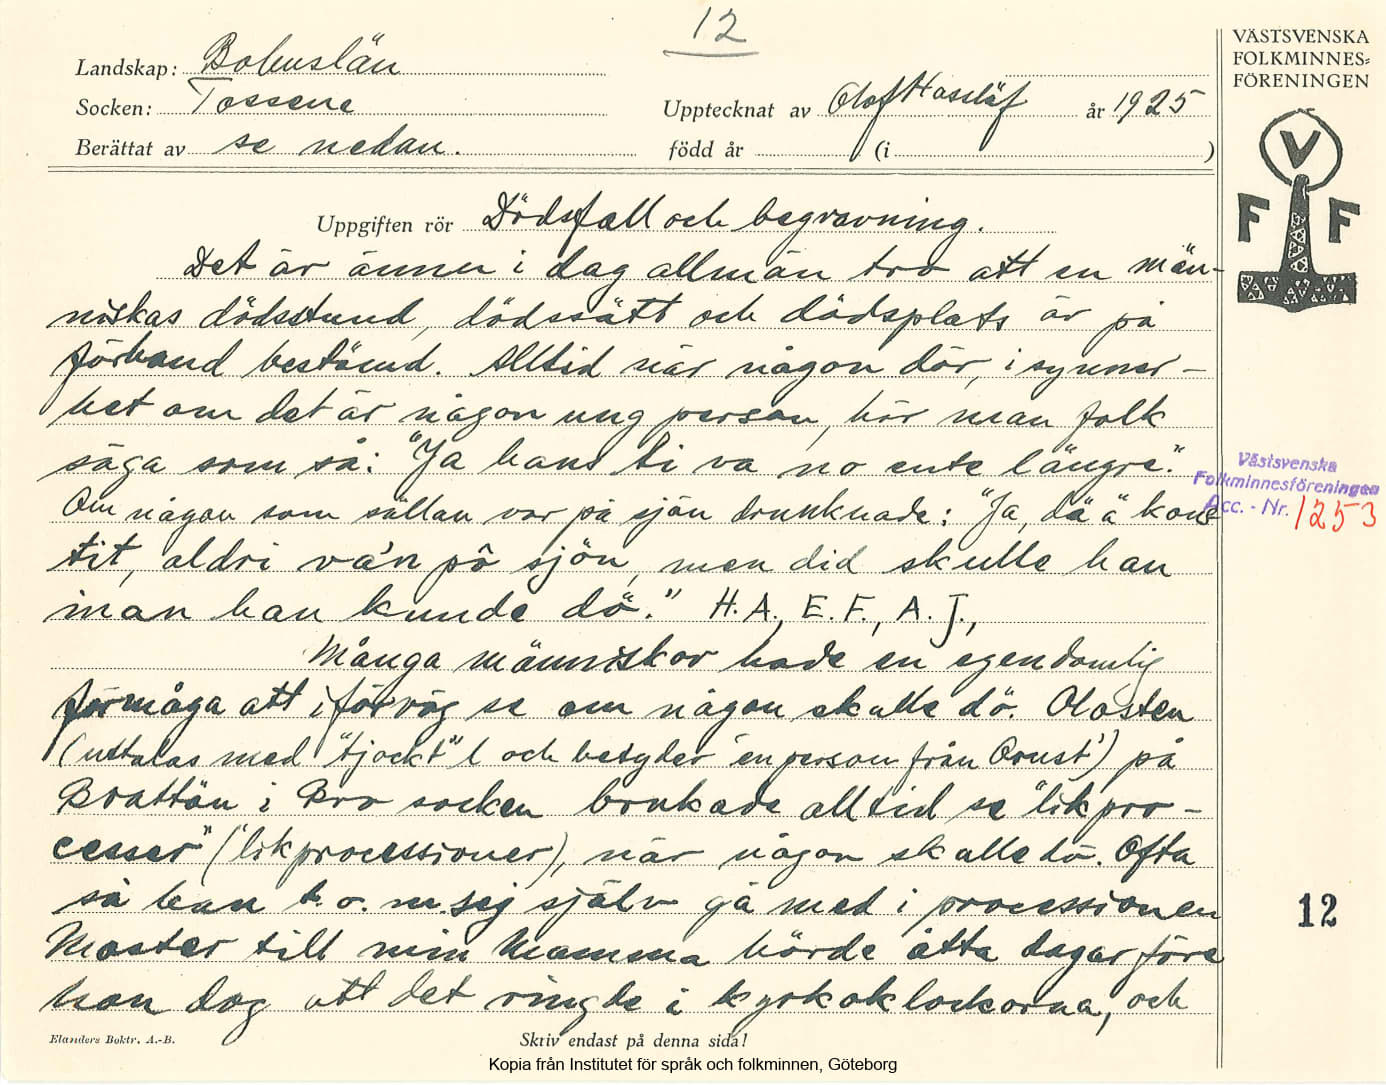 12
Landskap: Bohuslän
Socken: Tossene
Berättat av se nedan.
Upptecknat av Olof Hasslöf år 1925
född år (i )
VÄSTSVENSKA
FOLKMINNES=
FÖRENINGEN
V
F F
Uppgiften rör Dödsfall och begravning.
Det är ännu i dag allmän tro att en män-
niskas dödsstund, dödssätt och dödsplats är på
förhand bestämd. Alltid när någon dör, i synner-
het om det är någon ung person, hör man folk
säga som så: "Ja hans ti va no ente längre."
Om någon som sällan var på sjön drunknade: "Ja, dä ä kons
tit, aldri va'n pô sjön, men did skulle han
inan han kunde dö." H.A., E.F., A.J.,
Många människor hade en egendomlig
förmåga att i förväg se om någon skulle dö. Olosten
(uttalas med "tjockt" l och betyder 'en person från Orust') på
Brattön i Bro socken brukade alltid se "likpro-
cesser" ('likprocessioner), när någon skulle dö. Ofta
så han t.o.m. sej själv gå med i processionen
Moster till min mamma hörde åtta dagar före
hon dog att det ringde i kyrkoklockorna, och
Västsvenska
Folkminnesföreningen
Acc. - Nr. 1253
12
Elanders Boktr. A.-B.
Skriv endast på denna sida!
Kopia från Institutet för språk och folkminnen, Göteborg